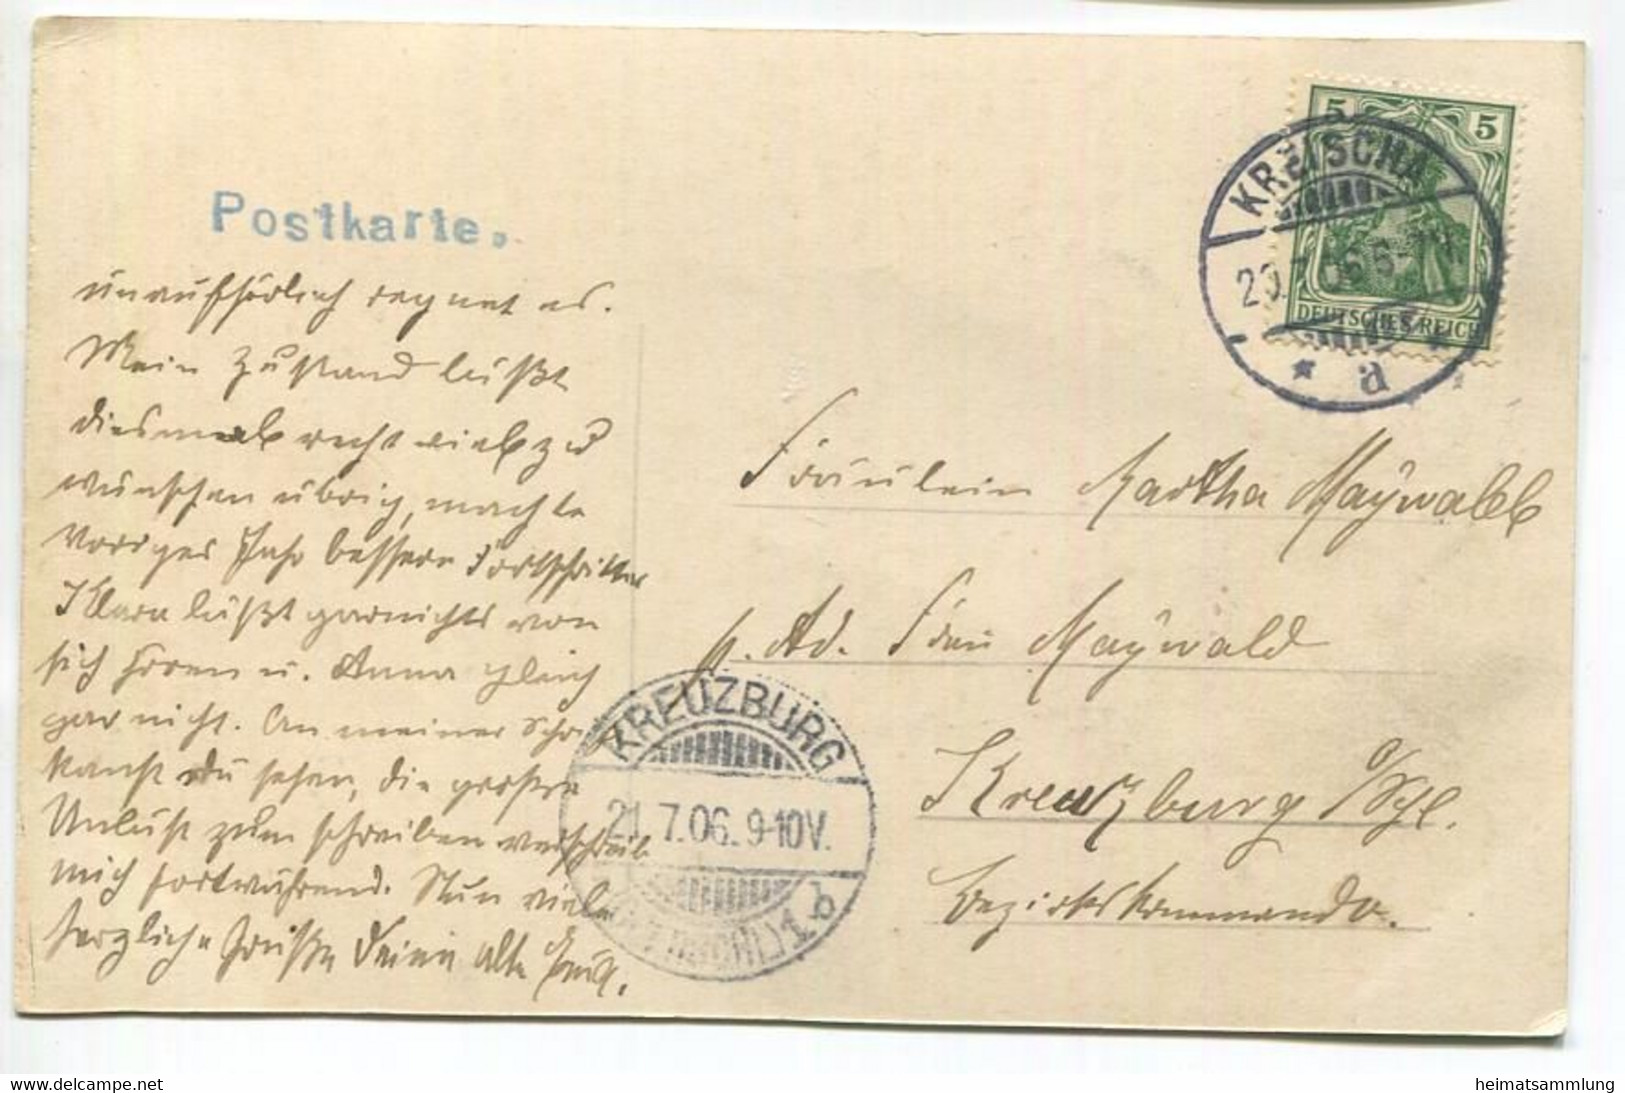 Postkarte.
unaufhörlich regnet es.
Mein Zustand läßt
diesmal recht viel zu
wünschen übrig, machte
voriges Jahr bessere Fortschritte
Klara läßt garnichts von
sich hören u. Anna gleich
gar nicht. An meiner
kanst Du sehen, die große
Unlust zum schreiben
mich fortwährend. Nun viele
herzliche Grüße Deine alte
KREISCHA
20.7.06.5-
* a *
5 5
DEUTSCHES REICH
Fräulein Martha Maywald
p. Ad. Frau Maywald
Kreuzburg O/Schl.
Bezirkskommando.
KREUZBURG
21.7.06.9-10V.
1 b
heimatsammlung